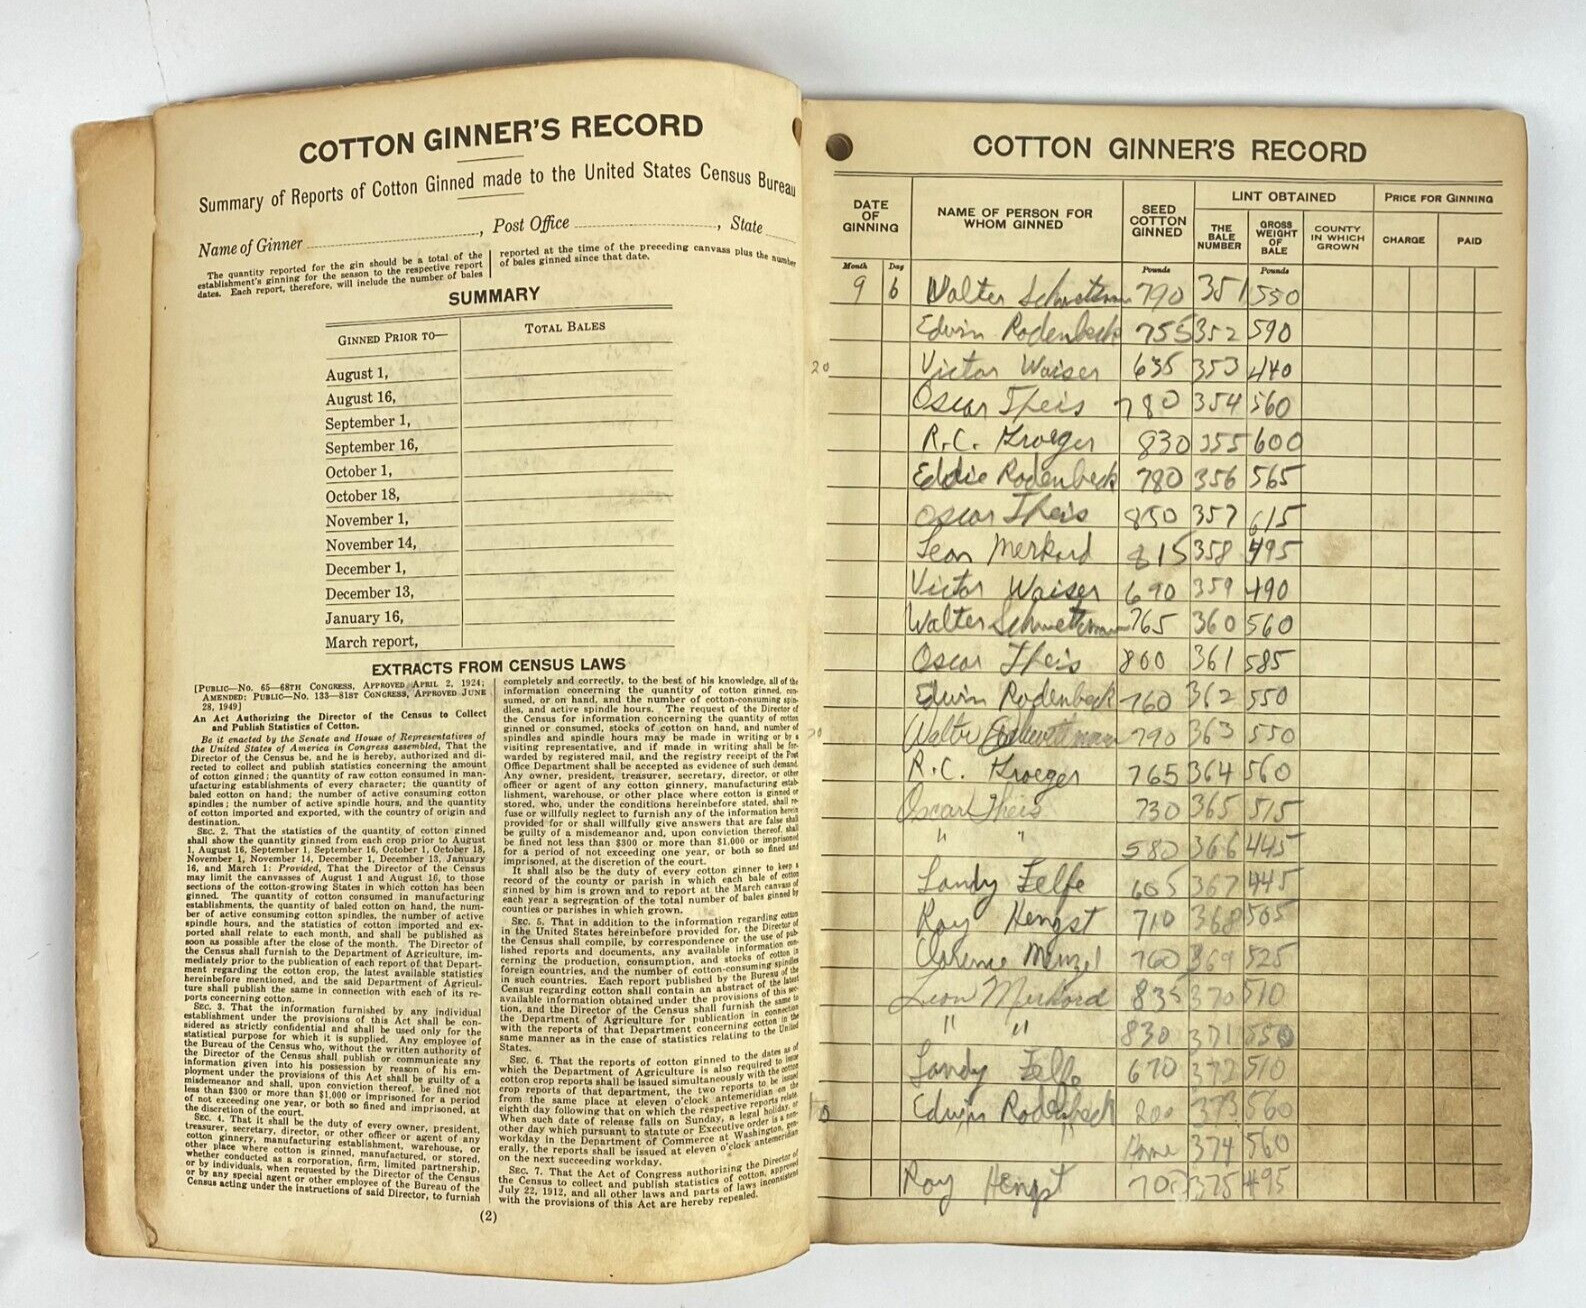 COTTON GINNER'S RECORD
Summary of Reports of Cotton Ginned made to the United States Census Bureau
Name of Ginner ..............., Post Office ..............., State
The quantity reported for the gin should be a total of the
establishment's ginning for the season to the respective report
dates. Each report, therefore, will include the number of bales
reported at the time of the preceding canvass plus the number
of bales ginned since that date.
SUMMARY
GINNED PRIOR TO— TOTAL BALES
August 1,
August 16,
September 1,
September 16,
October 1,
October 18,
November 1,
November 14,
December 1,
December 13,
January 16,
March report,
EXTRACTS FROM CENSUS LAWS
[PUBLIC—No. 65—68TH CONGRESS, APPROVED APRIL 2, 1924;
AMENDED: PUBLIC—No. 133—81ST CONGRESS, APPROVED JUNE
28, 1949]
An Act Authorizing the Director of the Census to Collect
and Publish Statistics of Cotton.
Be it enacted by the Senate and House of Representatives of
the United States of America in Congress assembled, That the
Director of the Census be, and he is hereby, authorized and di-
rected to collect and publish statistics concerning the amount
of cotton ginned; the quantity of raw cotton consumed in man-
ufacturing establishments of every character; the quantity of
baled cotton on hand; the number of active consuming cotton
spindles; the number of active spindle hours, and the quantity
of cotton imported and exported, with the country of origin and
destination.
SEC. 2. That the statistics of the quantity of cotton ginned
shall show the quantity ginned from each crop prior to August
1, August 16, September 1, September 16, October 1, October 18,
November 1, November 14, December 1, December 13, January
16, and March 1: Provided, That the Director of the Census
may limit the canvasses of August 1 and August 16, to those
sections of the cotton-growing States in which cotton has been
ginned. The quantity of cotton consumed in manufacturing
establishments, the quantity of baled cotton on hand, the num-
ber of active consuming cotton spindles, the number of active
spindle hours, and the statistics of cotton imported and ex-
ported shall relate to each month, and shall be published as
soon as possible after the close of the month. The Director of
the Census shall furnish to the Department of Agriculture, im-
mediately prior to the publication of each report of that Depart-
ment regarding the cotton crop, the latest available statistics
hereinbefore mentioned, and the said Department of Agricul-
ture shall publish the same in connection with each of its re-
ports concerning cotton.
SEC. 3. That the information furnished by any individual
establishment under the provisions of this Act shall be con-
sidered as strictly confidential and shall be used only for the
statistical purpose for which it is supplied. Any employee of
the Bureau of the Census who, without the written authority of
the Director of the Census shall publish or communicate any
information given into his possession by reason of his em-
ployment under the provisions of this Act shall be guilty of a
misdemeanor and shall, upon conviction thereof, be fined not
less than $300 or more than $1,000 or imprisoned for a period
of not exceeding one year, or both so fined and imprisoned, at
the discretion of the court.
SEC. 4. That it shall be the duty of every owner, president,
treasurer, secretary, director, or other officer or agent of any
cotton ginnery, manufacturing establishment, warehouse, or
other place where cotton is ginned, manufactured, or stored,
whether conducted as a corporation, firm, limited partnership,
or by individuals, when requested by the Director of the Census
or by any special agent or other employee of the Bureau of the
Census acting under the instructions of said Director, to furnish
completely and correctly, to the best of his knowledge, all of the
information concerning the quantity of cotton ginned, con-
sumed, or on hand, and the number of cotton-consuming spin-
dles, and active spindle hours. The request of the Director of
the Census for information concerning the quantity of cotton
ginned or consumed, stocks of cotton on hand, and number of
spindles and spindle hours may be made in writing or by a
visiting representative, and if made in writing shall be for-
warded by registered mail, and the registry receipt of the Post
Office Department shall be accepted as evidence of such demand.
Any owner, president, treasurer, secretary, director, or other
officer or agent of any cotton ginnery, manufacturing estab-
lishment, warehouse, or other place where cotton is ginned or
stored, who, under the conditions hereinbefore stated, shall re-
fuse or willfully neglect to furnish any of the information herein
provided for or shall willfully give answers that are false shall
be guilty of a misdemeanor and, upon conviction thereof, shall
be fined not less than $300 or more than $1,000 or imprisoned
for a period of not exceeding one year, or both so fined and
imprisoned, at the discretion of the court.
It shall also be the duty of every cotton ginner to keep a
record of the county or parish in which each bale of cotton
ginned by him is grown and to report at the March canvass of
each year a segregation of the total number of bales ginned by
counties or parishes in which grown.
SEC. 5. That in addition to the information regarding cotton
in the United States hereinbefore provided for, the Director of
the Census shall compile, by correspondence or the use of pub-
lished reports and documents, any available information con-
cerning the production, consumption, and stocks of cotton in
foreign countries, and the number of cotton-consuming spindles
in such countries. Each report published by the Bureau of the
Census regarding cotton shall contain an abstract of the latest
available information obtained under the provisions of this sec-
tion, and the Director of the Census shall furnish the same to
the Department of Agriculture for publication in connection
with the reports of that Department concerning cotton in the
same manner as in the case of statistics relating to the United
States.
SEC. 6. That the reports of cotton ginned to the dates as of
which the Department of Agriculture is also required to issue
cotton crop reports shall be issued simultaneously with the cotton
crop reports of that department, the two reports to be issued
from the same place at eleven o'clock antemeridian on the
eighth day following that on which the respective reports relate.
When such date of release falls on Sunday, a legal holiday, or
other day which pursuant to statute or Executive order is a non-
workday in the Department of Commerce at Washington, gen-
erally, the reports shall be issued at eleven o'clock antemeridian
on the next succeeding workday.
SEC. 7. That the Act of Congress authorizing the Director of
the Census to collect and publish statistics of cotton, approved
July 22, 1912, and all other laws and parts of laws inconsistent
with the provisions of this Act are hereby repealed.
(2)
COTTON GINNER'S RECORD
DATE OF GINNING NAME OF PERSON FOR WHOM GINNED SEED COTTON GINNED LINT OBTAINED PRICE FOR GINNING
THE BALE NUMBER GROSS WEIGHT OF BALE COUNTY IN WHICH GROWN CHARGE PAID
Month Day Pounds Pounds
9 6 Walter Schwetzman 790 351 550
Edwin Rodenbeck 755 352 590
20 Victor Waiser 635 353 440
Oscar Theis 780 354 560
R.C. Kroeger 830 355 600
Eddie Rodenbeck 780 356 565
Oscar Theis 850 357 615
Leon Merkord 815 358 495
Victor Waiser 690 359 490
Walter 765 360 560
Oscar Theis 800 361 585
Edwin Rodenbeck 760 362 550
Walter 790 363 550
R.C. Kroeger 765 364 560
Oscar Theis 730 365 515
" " 580 366 445
Landy Felfe 605 367 445
Roy Hengst 710 368 505
Clarence Menzel 760 369 525
Leon Merkord 835 370 510
" " 830 371 550
Landy Felfe 670 372 510
Edwin Rodenbeck 373 560
374 560
Roy Hengst 700 375 495